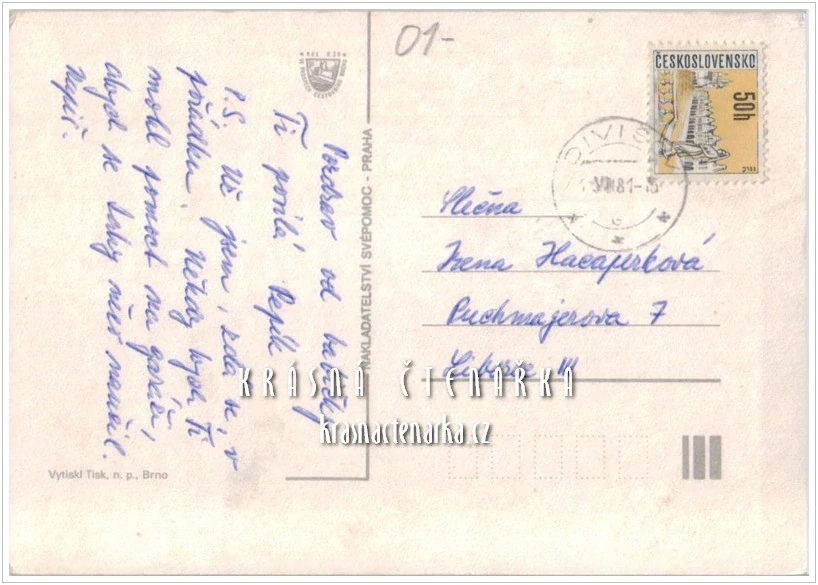 01-
ČESKOSLOVENSKO
50h
TELČ
DIVIŠ
81-15
Pozdrav od babičky
Ti posílá Pepík
P.S. Už jsem, zdá se, v
pořádku. Někdy bych Ti
mohl pomoct na garáži,
abych se taky něco naučil.
Slečna
Irena
Puchmajerova 7
Liberec III
NAKLADATELSTVÍ SVÉPOMOC - PRAHA
KRÁSNÁ ČTENÁŘKA
krasnactenarka.cz
Vytiskl Tisk, n. p., Brno